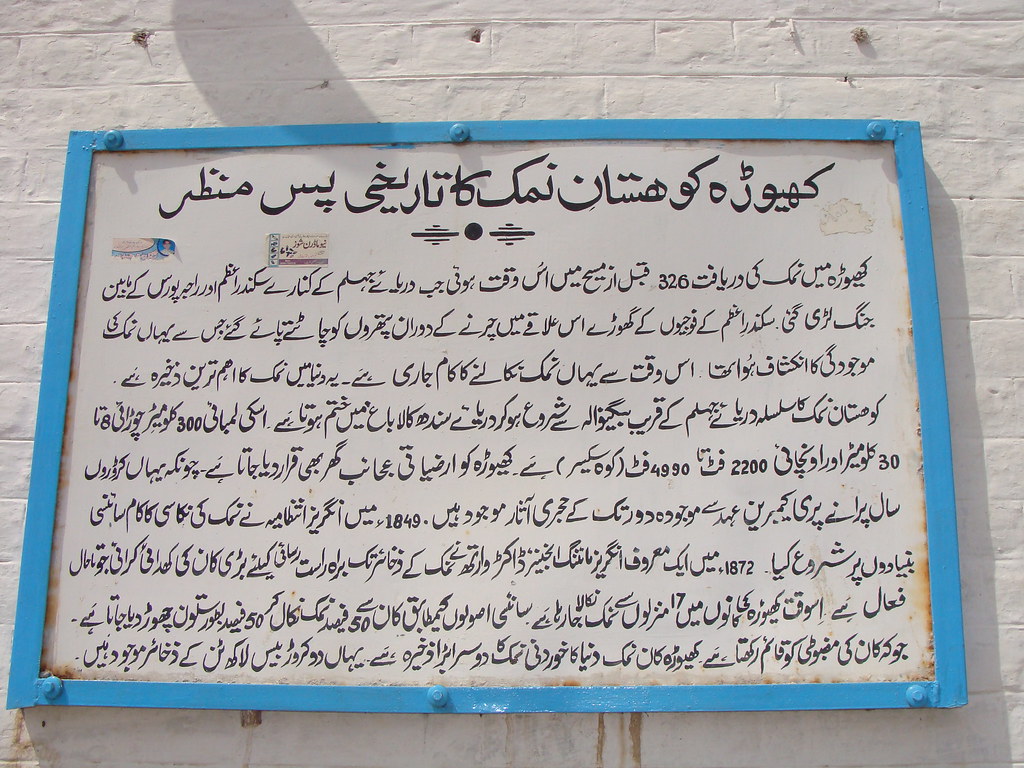 کھیوڑہ کوھستانِ نمک کا تاریخی پس منظر
نیو ماڈرن شوز
کھیوڑہ میں نمک کی دریافت 326 قبل از مسیح میں اُس وقت ہوئی جب دریائے جہلم کے کنارے سکندر اعظم اور راجہ پورس کے مابین
جنگ لڑی گئی۔ سکندر اعظم کے فوجیوں کے گھوڑے اس علاقے میں چرنے کے دوران پتھروں کو چاٹتے پائے گئے جس سے یہاں نمک کی
موجودگی کا انکشاف ہُوا تھا۔ اس وقت سے یہاں نمک نکالنے کا کام جاری ہے۔ یہ دنیا میں نمک کا اہم ترین ذخیرہ ہے۔
کوھستان نمک کا سلسلہ دریائے جہلم کے قریب بیگنوالہ سے شروع ہو کر دریائے سندھ کالا باغ میں ختم ہوتا ہے۔ اسکی لمبائی 300 کلومیٹر چوڑائی 8 تا
30 کلومیٹر اور اونچائی 2200 فٹ تا 4990 فٹ (کوہ سکیسر) ہے۔ کھیوڑہ کو ارضیاتی عجائب گھر بھی قرار دیا جاتا ہے۔ چونکہ یہاں کروڑوں
سال پرانے پری کیمبرین عہد سے موجودہ دور تک کے حجری آثار موجود ہیں۔ 1849ء میں انگریز انتظامیہ نے نمک کی نکاسی کا کام سائنسی
بنیادوں پر شروع کیا۔ 1872ء میں ایک معروف انگریز مائننگ انجینئر ڈاکٹر وارتھ نے نمک کے ذخائر تک براہ راست رسائی کیلئے بڑی کان کی کھدائی کرائی جو تاحال
فعال ہے۔ اسوقت کھیوڑہ کی کانوں میں 17 منزلوں سے نمک نکالا جا رہا ہے سائنسی اصولوں کیمطابق کان سے 50 فیصد نمک نکال کر 50 فیصد بطور ستون چھوڑ دیا جاتا ہے۔
جو کہ کان کی مضبوطی کو قائم رکھتا ہے کھیوڑہ کان نمک دنیا کا خوردنی نمک کا دوسرا بڑا ذخیرہ ہے۔ یہاں دو کروڑ بیس لاکھ ٹن کے ذخائر موجود ہیں۔